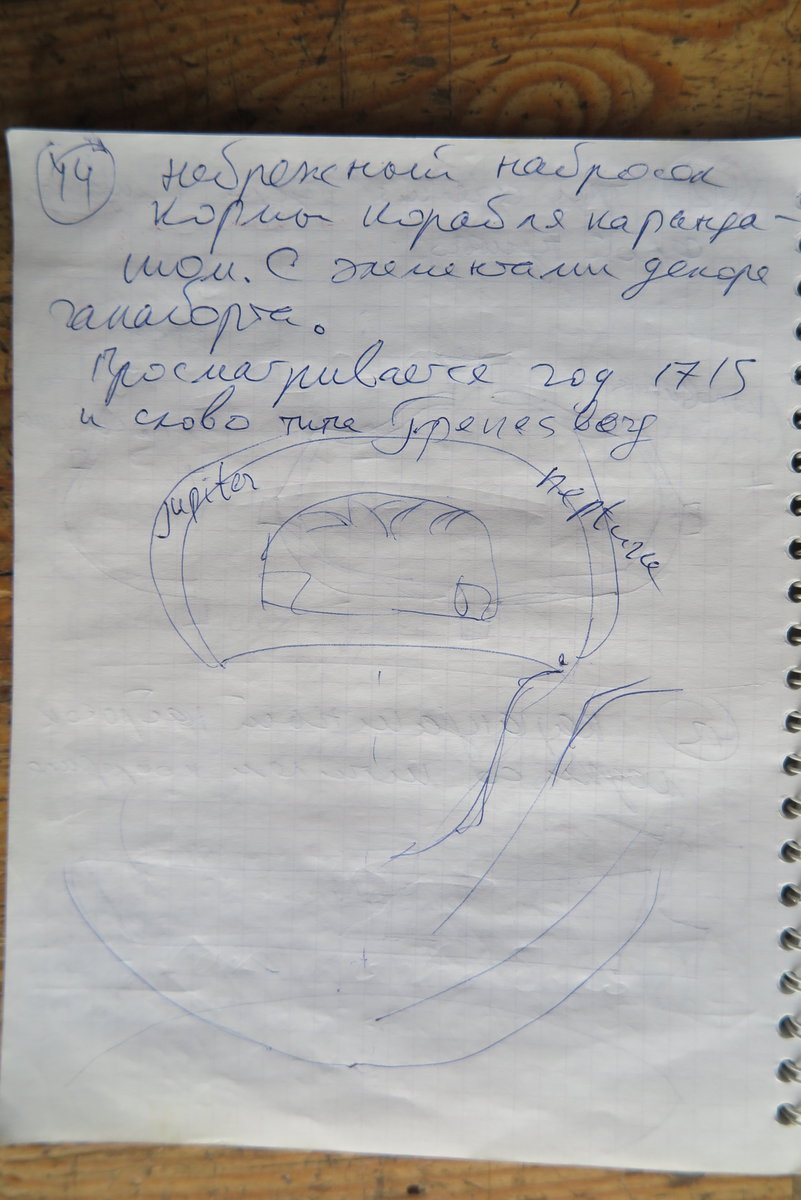 44 небрежный набросок
кормы корабля каранда-
шом. С элементами декора
гакаборта.
Просматривается год 1715
и слово типа
Jupiter
neptune